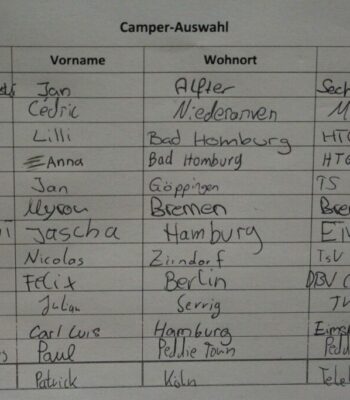 Camper-Auswahl
Vorname Wohnort
Jan Alfter Sech
Cédric Niederanven M
Lilli Bad Homburg HTG
Anna Bad Homburg HTG
Jan Göppingen TS
Myron Bremen Bre
Jascha Hamburg
Nicolas Zirndorf TSV
Felix Berlin DBV
Julian Serrig
Carl Luis Hamburg Eims
Paul Peddie Town Pedd
Patrick Köln Tele